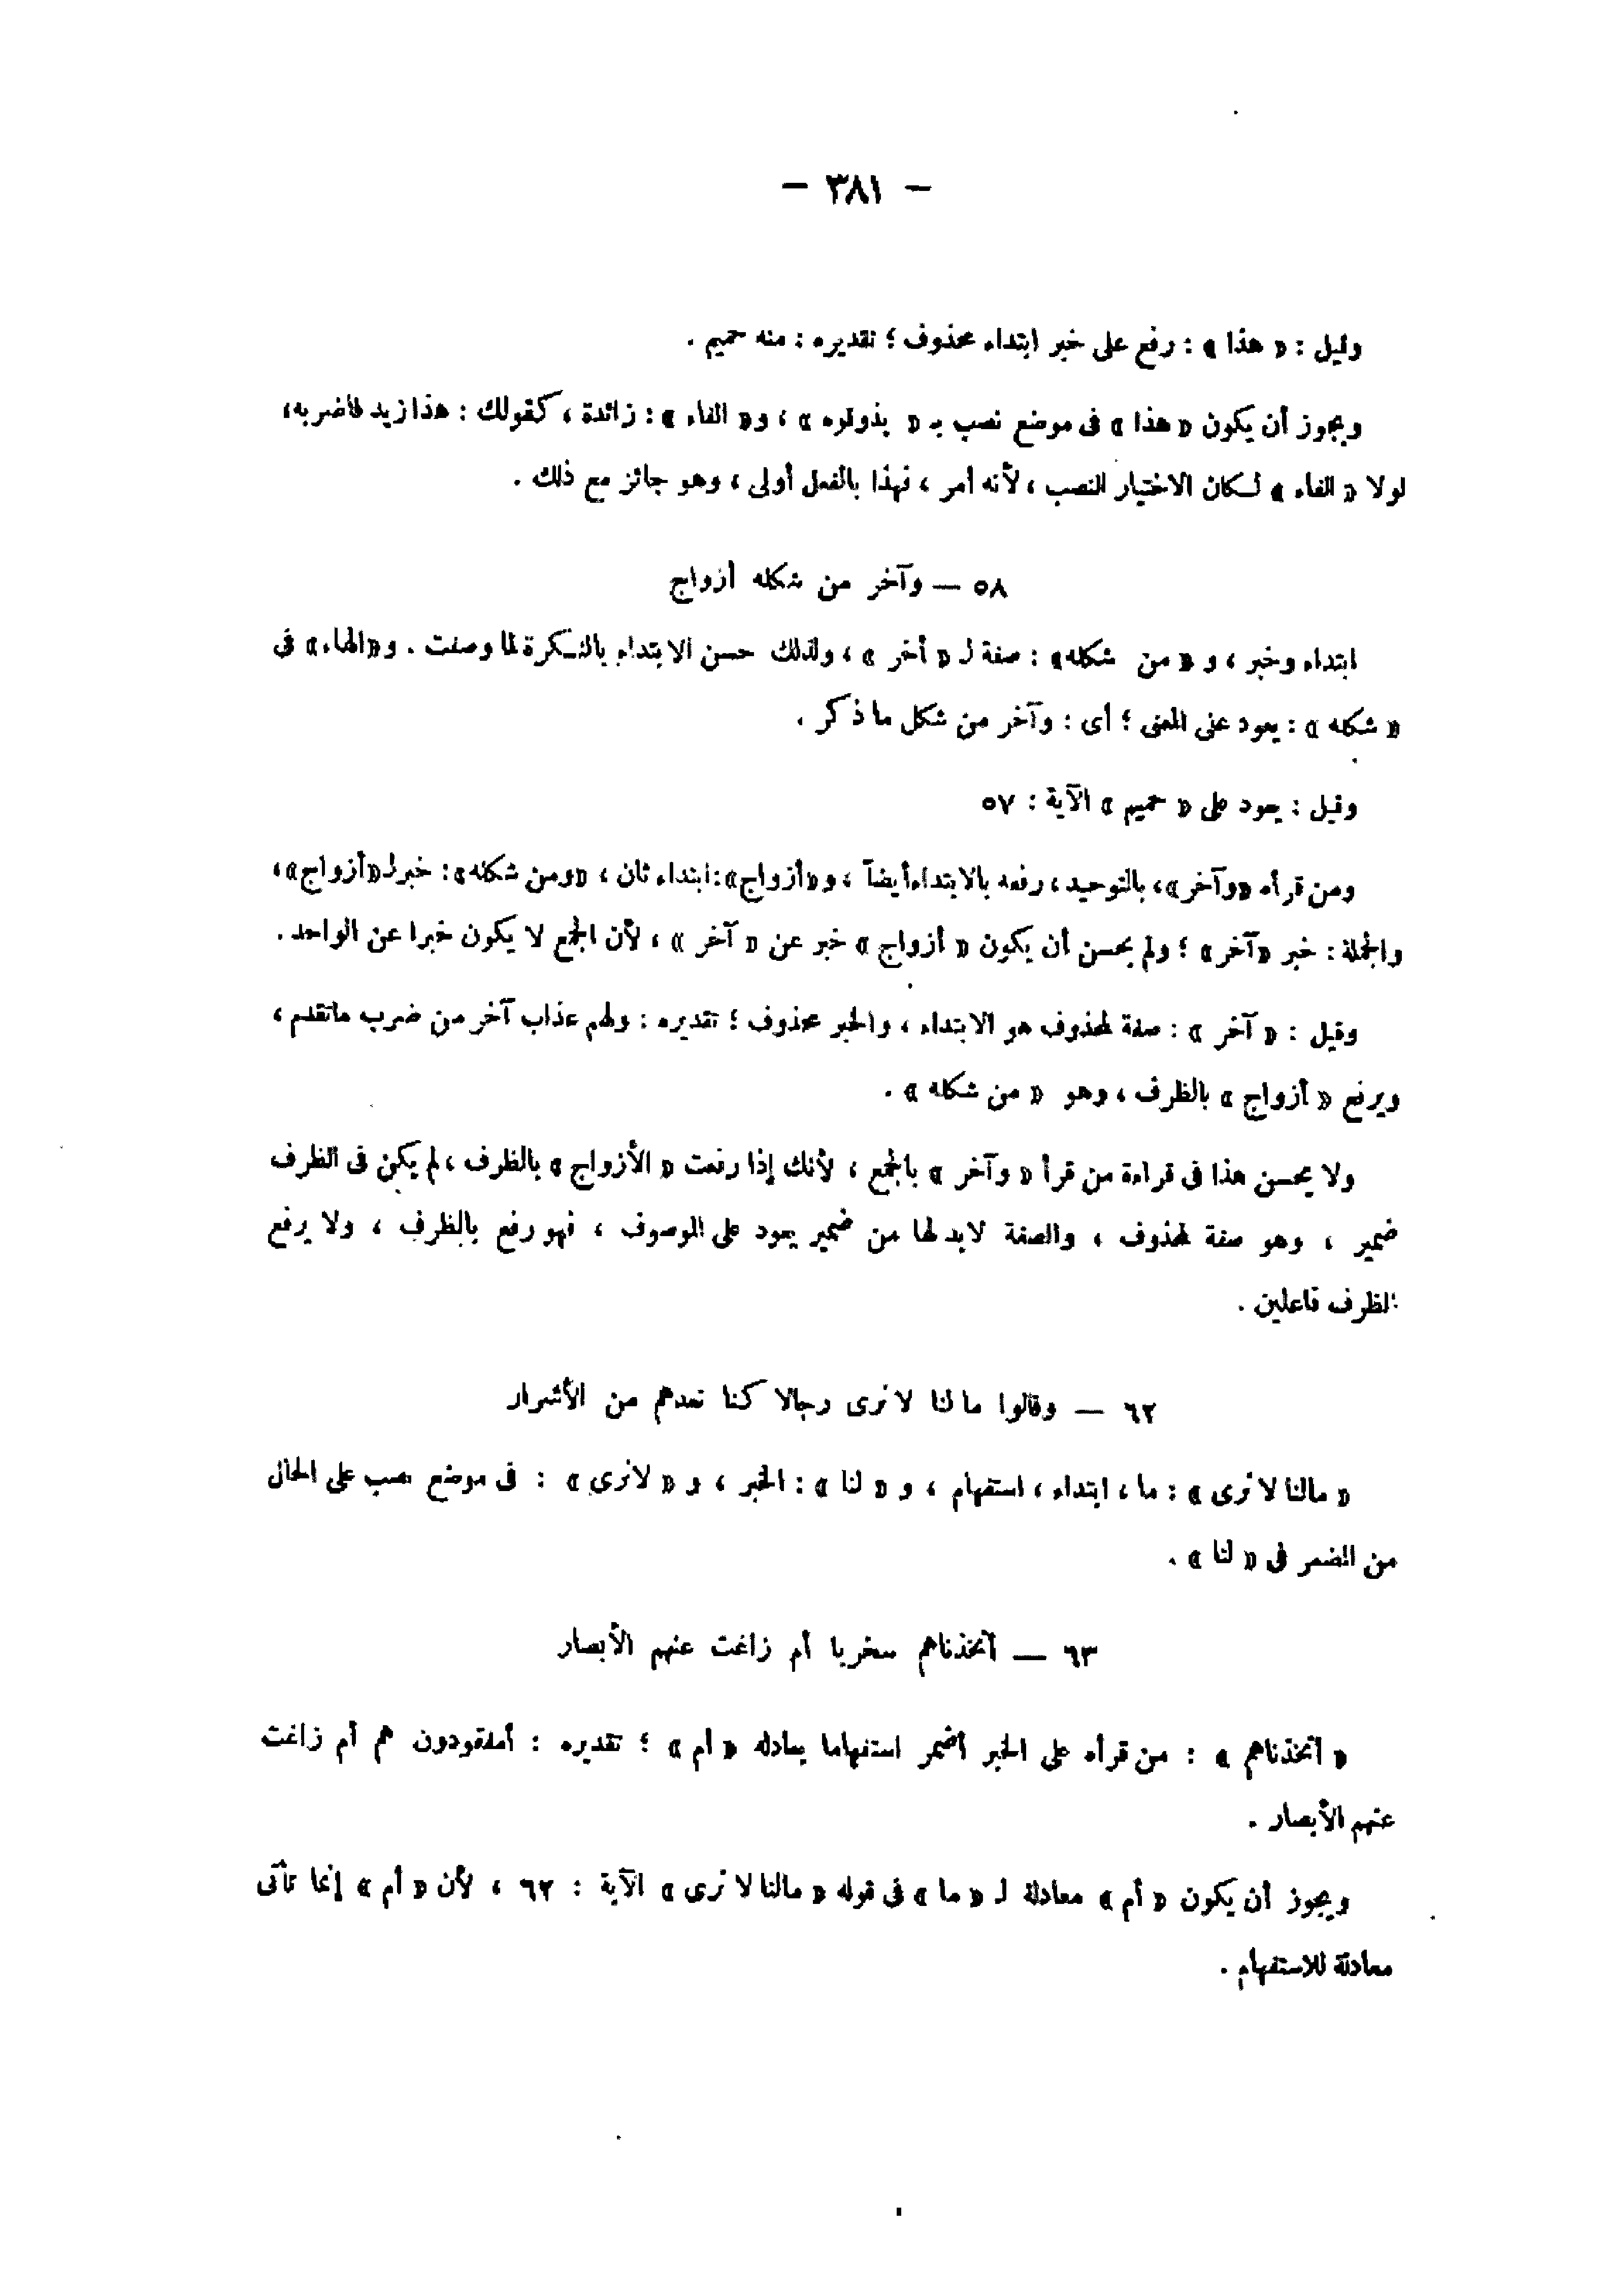 — ٣٨١ —
وقيل : « هذا » : رفع على خبر ابتداء محذوف ؛ تقديره : منه حميم .
ويجوز أن يكون « هذا » فى موضع نصب بـ « يذوقوه » ، و« الفاء » : زائدة ، كقولك : هذا زيد فاضربه ،
لولا « الفاء » لكان الاختيار النصب ، لأنه أمر ، فهذا بالفعل أولى ، وهو جائز مع ذلك .
٥٨ — وآخر من شكله أزواج
ابتداء وخبر ، و « من شكله » : صفة لـ « أخر » ، ولذلك حسن الابتداء بالنكرة لما وصفت . و«الهاء» فى
« شكله » : يعود على المعنى ؛ أى : وآخر من شكل ما ذكر .
وقيل : يعود على « حميم » الآية : ٥٧
ومن قرأه «وآخر» ، بالتوحيد ، رفعه بالابتداء أيضاً ، و«أزواج» : ابتداء ثان ، «ومن شكله» : خبر لـ«أزواج» ،
والجملة : خبر «آخر» ؛ ولم يحسن أن يكون « أزواج » خبر عن « آخر » ، لأن الجمع لا يكون خبرا عن الواحد .
وقيل : « آخر » : صفة لمحذوف هو الابتداء ، والخبر محذوف ؛ تقديره : ولهم عذاب آخر من ضرب ماتقدم ،
ويرفع « أزواج » بالظرف ، وهو « من شكله » .
ولا يحسن هذا فى قراءة من قرأ « وآخر » بالجمع ، لأنك إذا رفعت « الأزواج » بالظرف ، لم يكن فى الظرف
ضمير ، وهو صفة لمحذوف ، والصفة لابد لها من ضمير يعود على الموصوف ، فهو رفع بالظرف ، ولا يرفع
الظرف فاعلين .
٦٢ — وقالوا ما لنا لا نرى رجالا كنا نعدهم من الأشرار
« مالنا لا نرى » : ما ، ابتداء ، استفهام ، و « لنا » : الخبر ، و « لانرى » : فى موضع نصب على الحال
من المضمر فى « لنا » .
٦٣ — أتخذناهم سخريا أم زاغت عنهم الأبصار
« أتخذناهم » : من قرأه على الخبر أضمر استفهاما يعادله « أم » ؛ تقديره : أمفقودون هم أم زاغت
عنهم الأبصار .
ويجوز أن يكون « أم » معادلة لـ « ما » فى قوله « مالنا لا نرى » الآية : ٦٢ ، لأن « أم » إنما تأتى
معادلة للاستفهام .